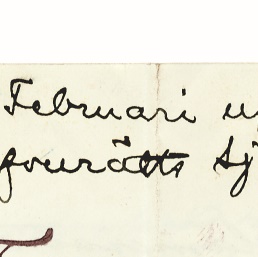 Februari u
govrätts sj